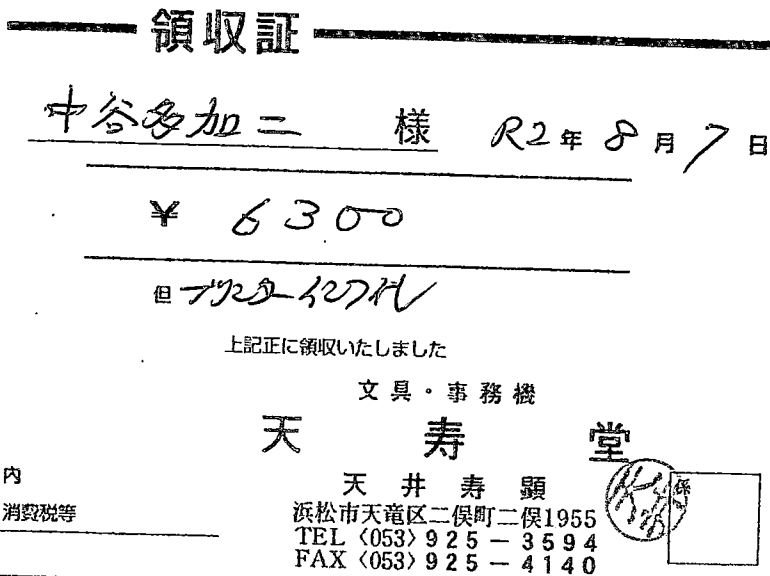 領収証
中谷多加二 様 R2年8月7日
¥ 6300
但 プリンターインク代
上記正に領収いたしました
文具・事務機
天寿堂
天井寿顕
内
消費税等
浜松市天竜区二俣町二俣1955
TEL〈053〉925-3594
FAX〈053〉925-4140
係